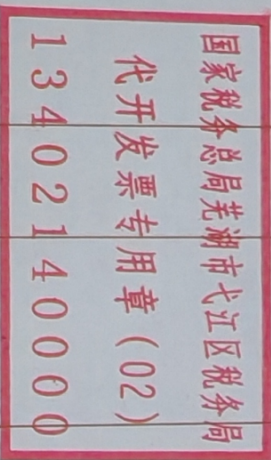 国家税务总局芜湖市弋江区税务局
代开发票专用章(02)
13402140000